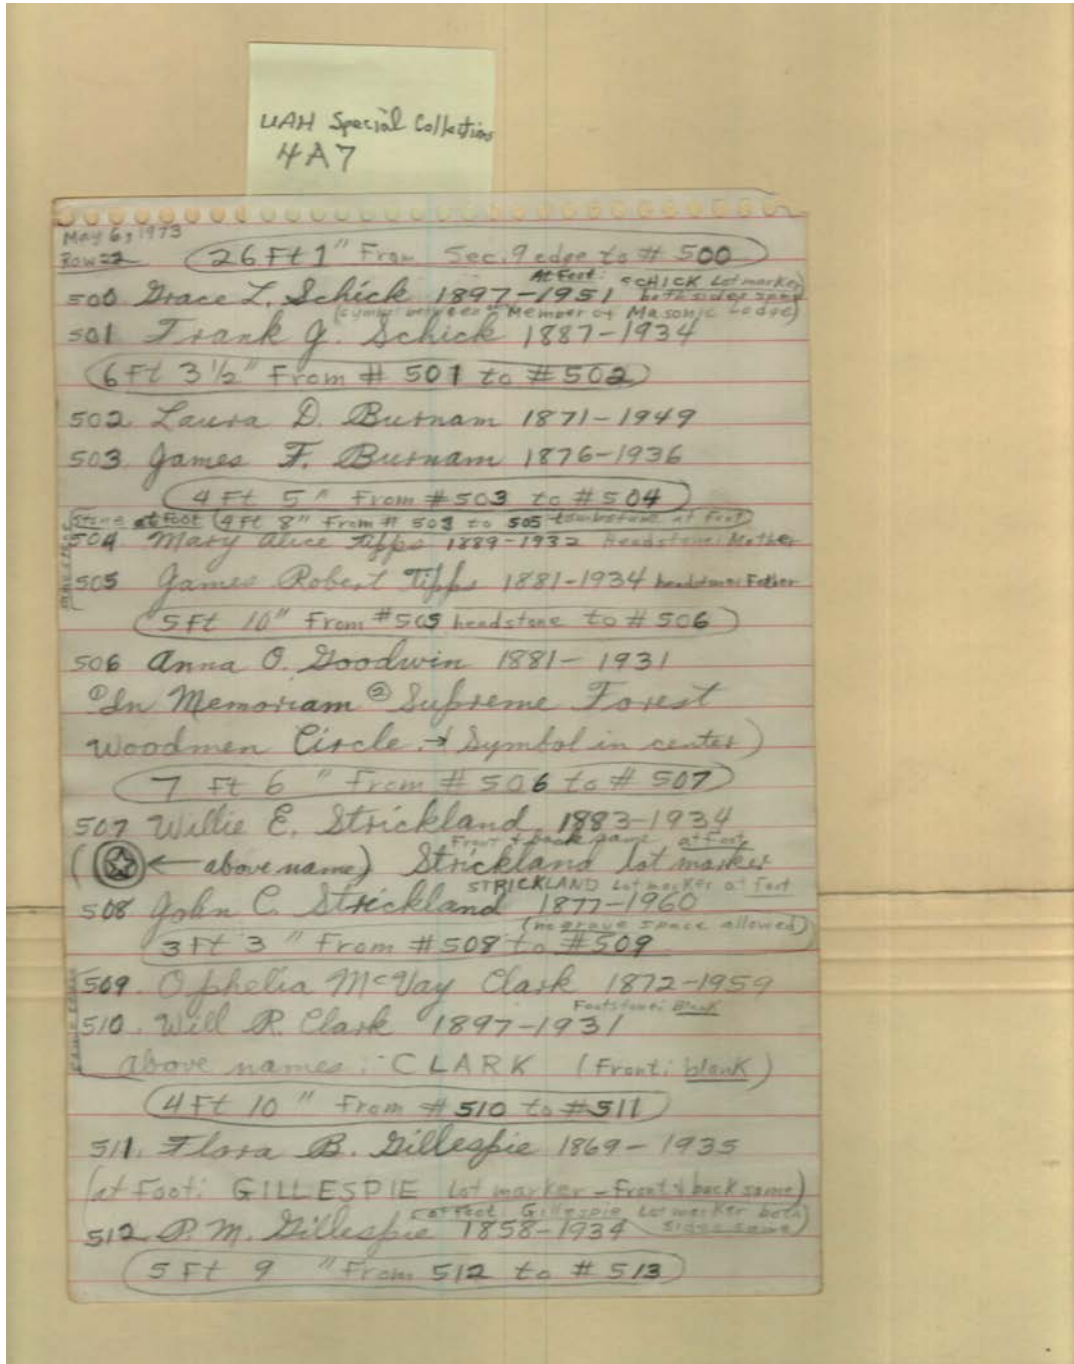 UAH Special Collections
4A7
May 6, 1973
Row 22
26 Ft 1" From Sec. 9 edge to # 500
At Foot: SCHICK Lot marker
500 Grace L. Schick 1897-1951 both sides same
(symbol between Member of Masonic Lodge)
501 Frank J. Schick 1887-1934
6 Ft 3 1/2" From # 501 to # 502
502. Laura D. Burnam 1871-1949
503. James F. Burnam 1876-1936
4 Ft 5" From # 503 to # 504
Stone at foot (4 Ft 8" From # 503 to 505 tombstone at foot)
504 Mary Alice Tipps 1889-1932 Headstone: Mother
505 James Robert Tipps 1881-1934 headstone: Father
5 Ft 10" From # 505 headstone to # 506
506 Anna O. Goodwin 1881-1931
① In Memoriam ② Supreme Forest
Woodmen Circle → Symbol in center)
7 Ft 6" From # 506 to # 507
507 Willie E. Strickland 1883-1934
Front + back same at foot
( ← above name) Strickland lot marker
STRICKLAND Lot marker at foot
508 John C. Strickland 1877-1960
(no grave space allowed)
3 Ft 3" From # 508 to # 509
509. Ophelia McVay Clark 1872-1959
Footstone: Blank
510. Will R. Clark 1897-1931
above names: CLARK (Front: blank)
4 Ft 10" From # 510 to # 511
511. Flora B. Gillespie 1869-1935
(at Foot: GILLESPIE Lot marker - Front & back same)
(at foot: Gillespie Lot marker both
512 P. M. Gillespie 1858-1934 sides same)
5 Ft 9" From 512 to # 513